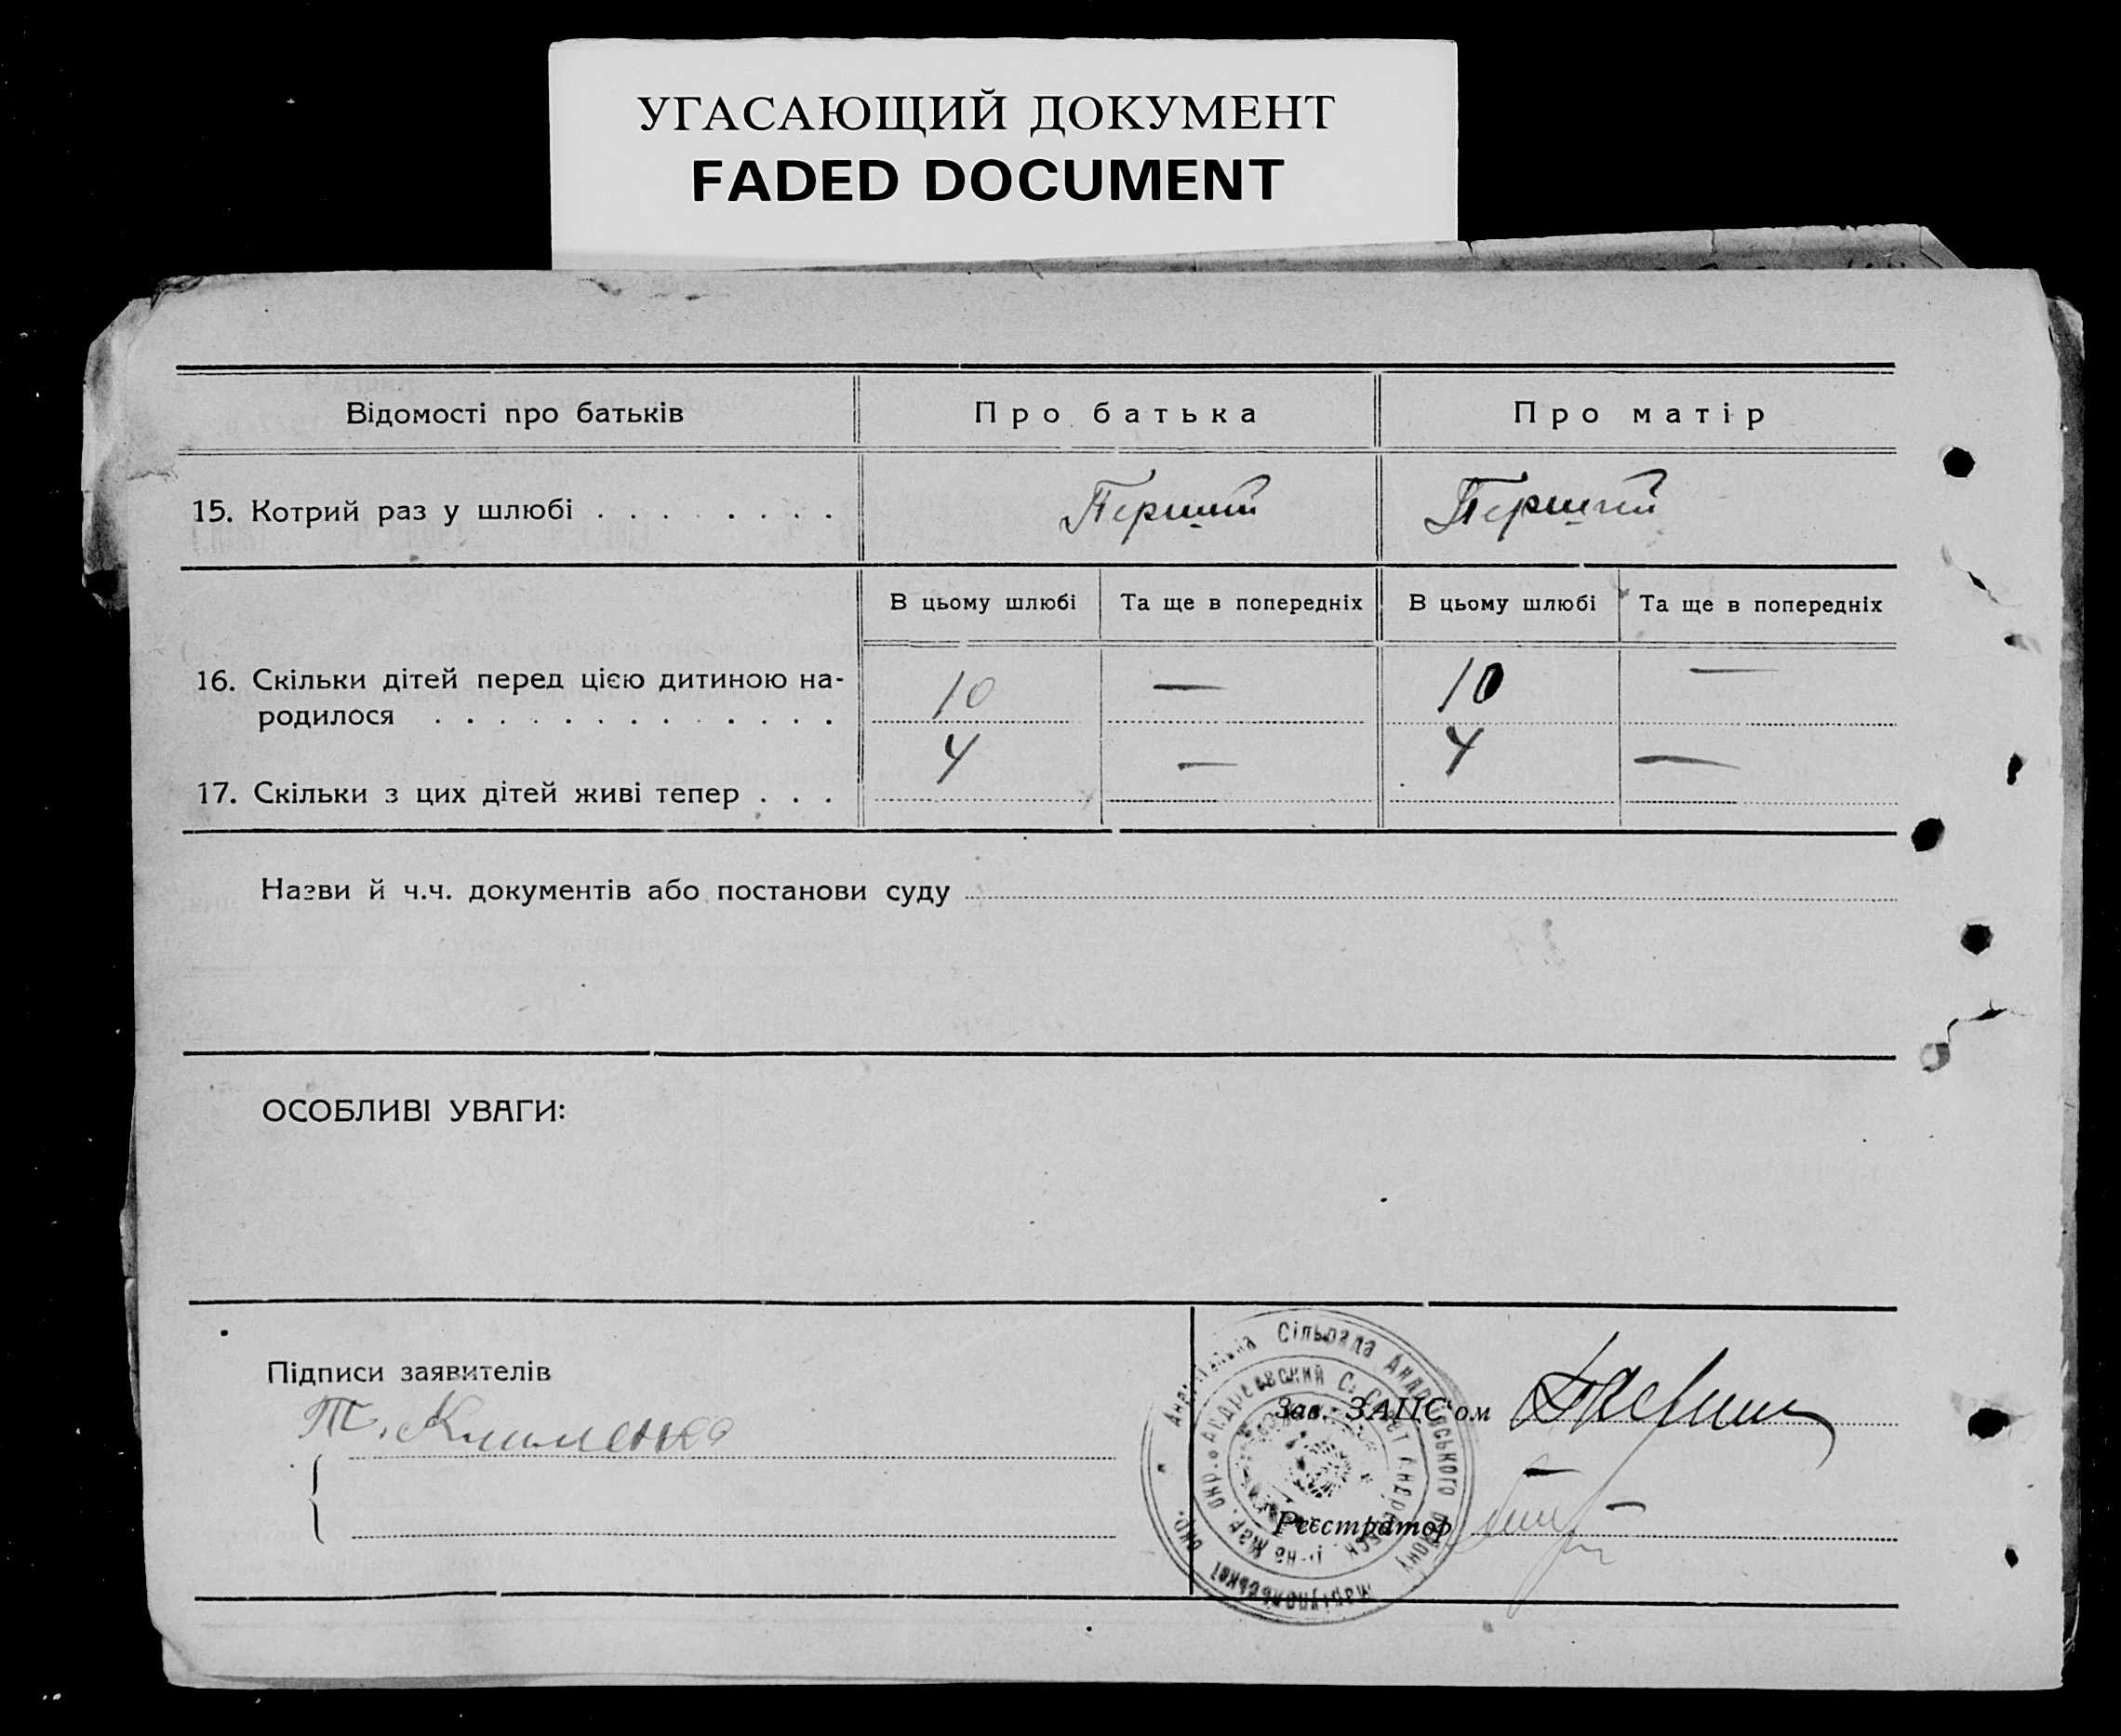 УГАСАЮЩИЙ ДОКУМЕНТ
FADED DOCUMENT
Відомості про батьків Про батька Про матір
15. Котрий раз у шлюбі . . . . . . . . Перший Перший
В цьому шлюбі Та ще в попередніх В цьому шлюбі Та ще в попередніх
16. Скільки дітей перед цією дитиною на-
родилося . . . . . . . . . . . . . 10 — 10 —
17. Скільки з цих дітей живі тепер . . . 4 — 4 —
Назви й ч.ч. документів або постанови суду
ОСОБЛИВІ УВАГИ:
Підписи заявителів
Т. Клименко
Зав. ЗАЦС'ом
Реєстратор
Сільрада Андріївського району Маріупольської окр.
Андреевский С. Совет